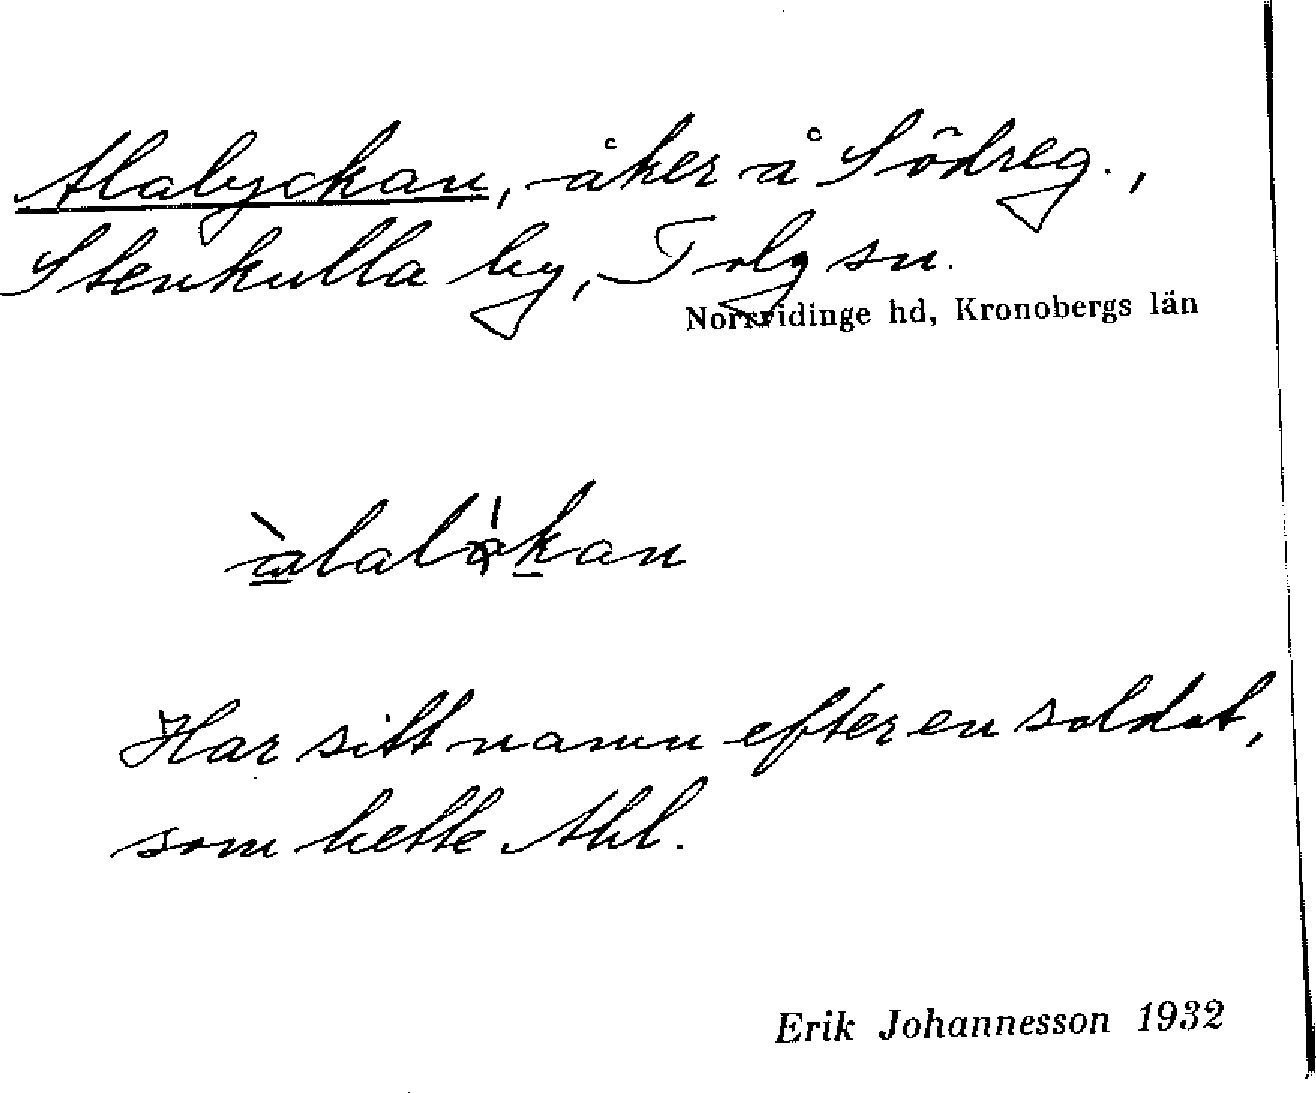 Alalyckan, åker å Södreg.,
Stenkulla by, Tolg sn.
Norrvidinge hd, Kronobergs län
Har sitt namn efter en soldat,
som hette Ahl.
Erik Johannesson 1932